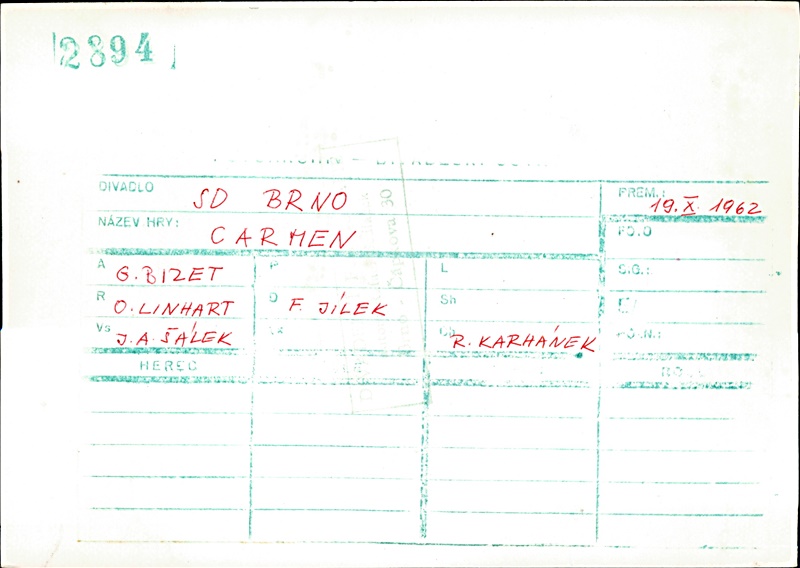 2894
DIVADLO SD BRNO PREM.: 19. X. 1962
NÁZEV HRY: CARMEN FOTO
A G. BIZET P L S.G.:
R O. LINHART D F. JÍLEK Sh
Vs J. A. ŠÁLEK Ch R. KARHÁNEK
HEREC